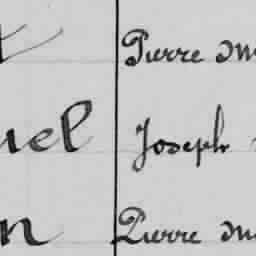 Pierre
uel Joseph
n Pierre